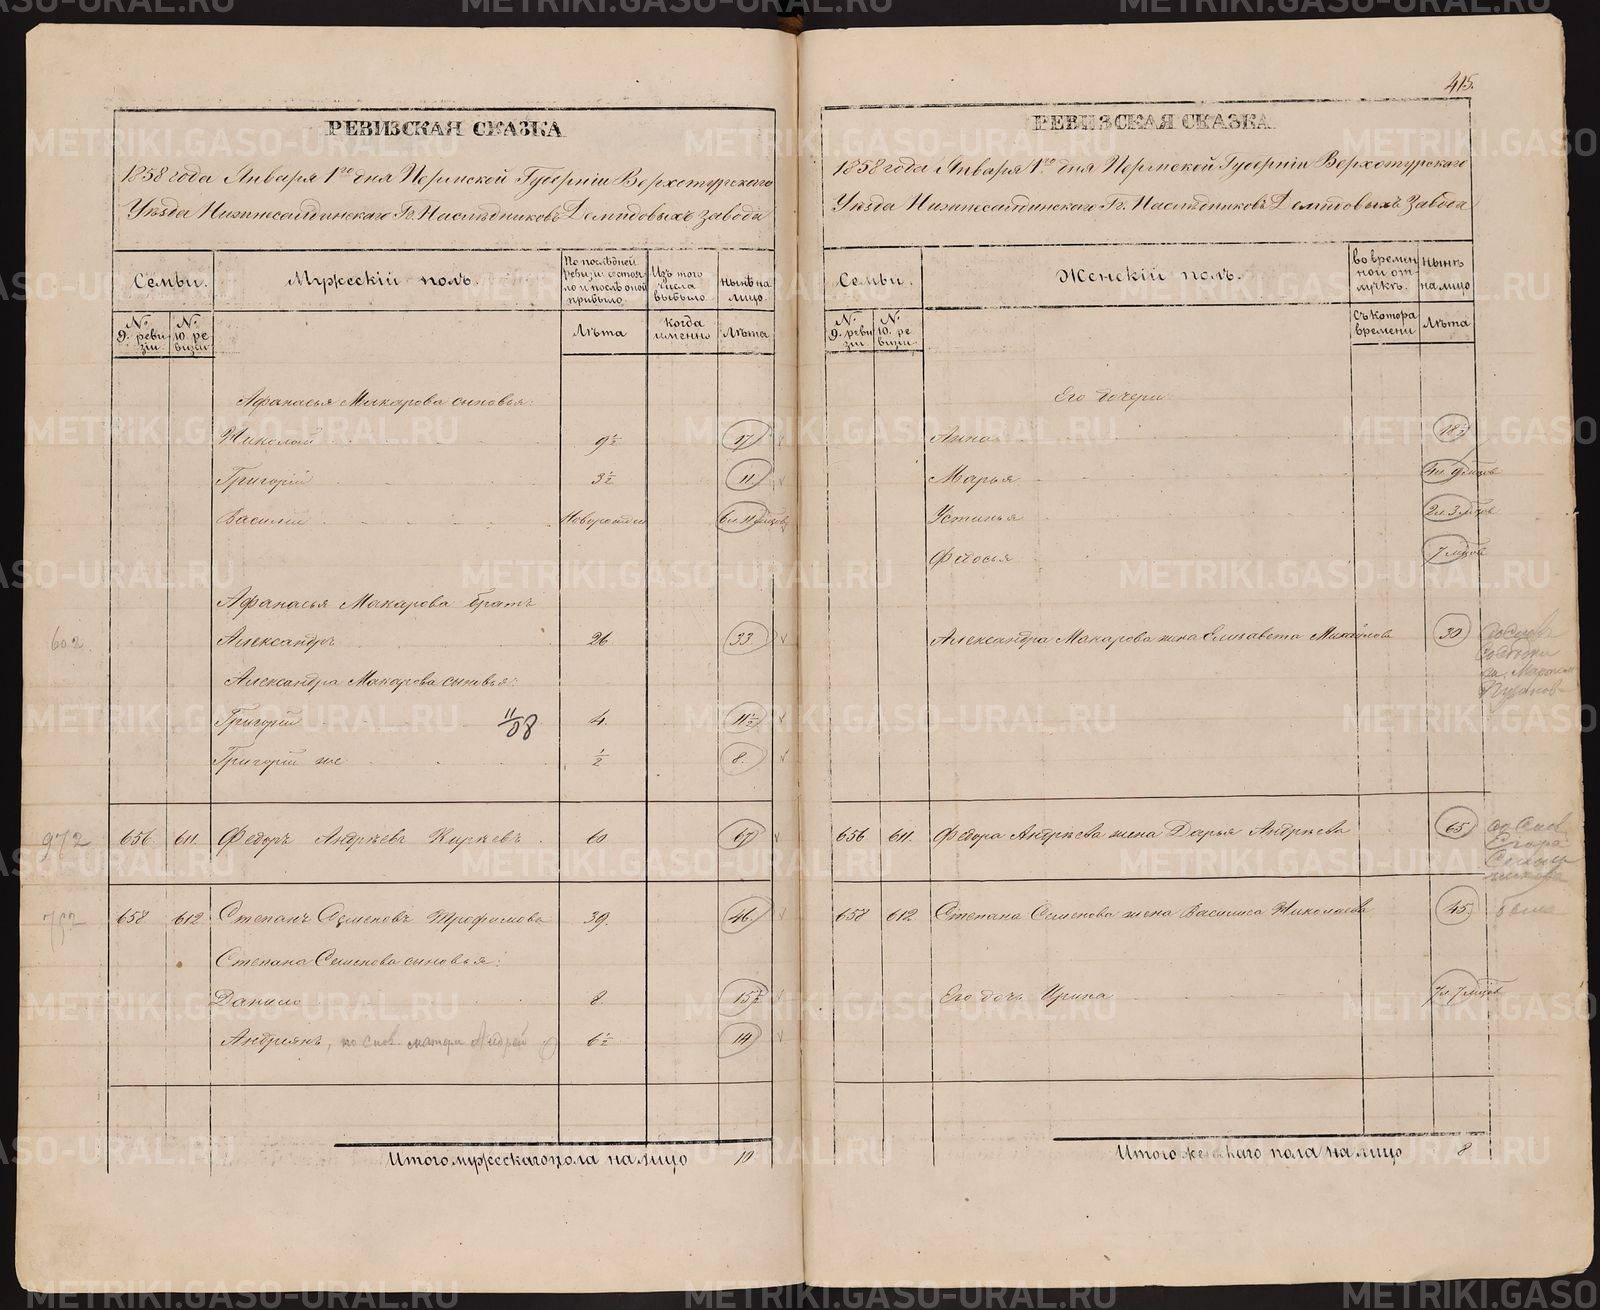 415.
РЕВИЗСКАЯ СКАЗКА
1858 года Января 1го дня Пермской Губерніи Верхотурскаго
Уѣзда Нижнесалдинскаго Гг. Наслѣдниковъ Демидовыхъ завода
Семьи. Мужескій полъ. По послѣдней ревизіи состояло и послѣ оной прибыло Изъ того числа выбыло Нынѣ на лицо.
№ 9. ревизіи № 10. ревизіи Лѣта когда именно Лѣта
Афанасья Макарова сыновья:
Николай 9½ 17
Григорій 3½ 11
Василій Новорожден 6 л 11 мцовъ
Афанасья Макарова братъ
602. Александръ 26 33
Александра Макарова сыновья:
Григорій 11/08 4. 11½
Григорій же ½ 8.
972 656 611. Федоръ Андреевъ 60 67
752 658 612 Степанъ Семеновъ Трофимова 39. 46
Степана Семенова сыновья:
Данило 8. 15½
Андріянъ, по матери Андрей 6½ 14
Итого мужескаго пола на лицо 10
РЕВИЗСКАЯ СКАЗКА
1858 года Января 1го дня Пермской Губерніи Верхотурскаго
Уѣзда Нижнесалдинскаго Гг. Наслѣдниковъ Демидовыхъ Завода
Семьи. Женскій полъ. во временной отлучкѣ. Нынѣ на лицо
№ 9. ревизіи № 10. ревизіи Съ котора времени Лѣта
Его дочери:
Анна 18½
Марья 4 л 9 мцовъ
Устинья 2 л 3 мцовъ
Федосья 7 мцовъ
Александра Макарова жена Елизавета 30
656 611. Федора Андреева жена Дарья Андреева 65
Егора
658 612 Степана Семенова жена Василиса Николаева 45
Его дочь Ирина 7 л 7 мцовъ
Итого женскаго пола на лицо 8
METRIKI.GASO-URAL.RU